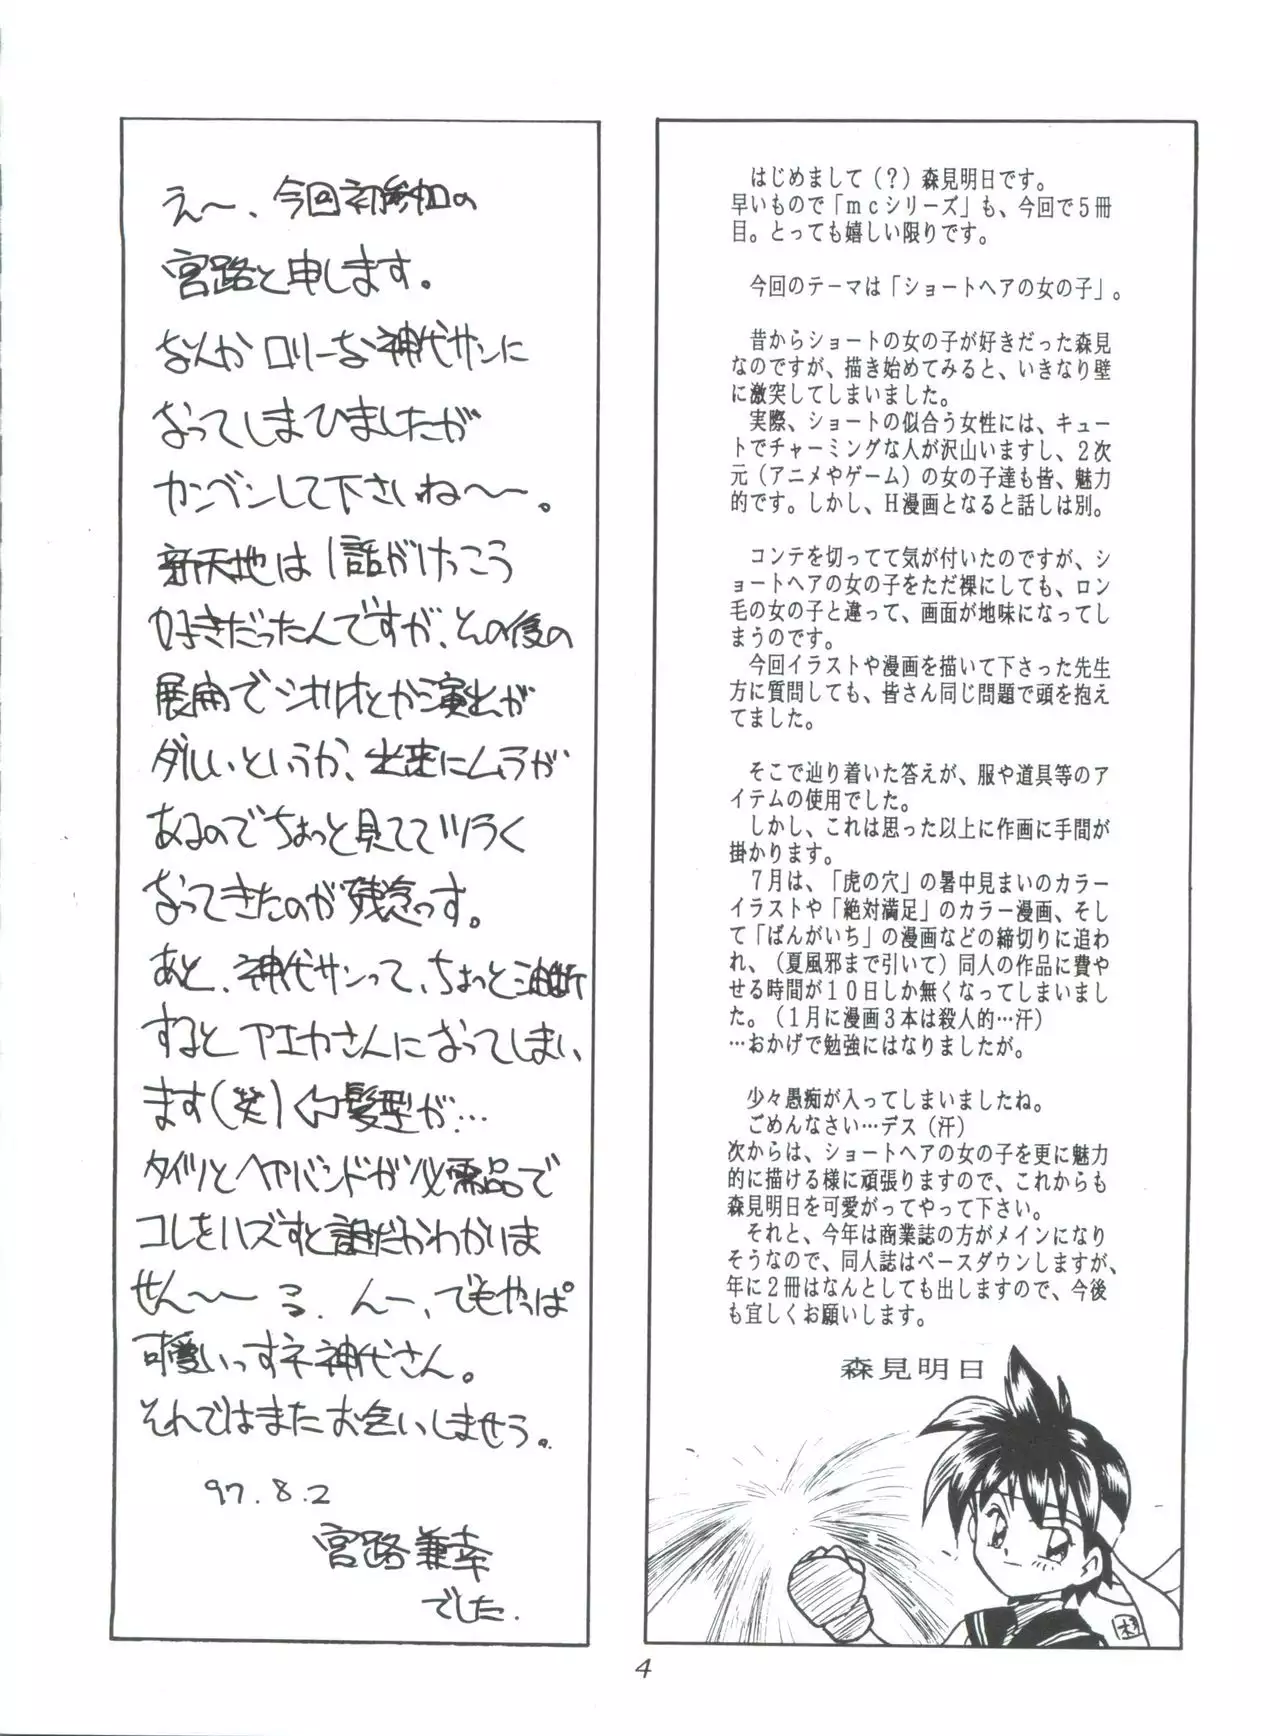 はじめまして（？）森見明日です。
早いもので「ｍｃシリーズ」も、今回で５冊
目。とっても嬉しい限りです。
今回のテーマは「ショートヘアの女の子」。
昔からショートの女の子が好きだった森見
なのですが、描き始めてみると、いきなり壁
に激突してしまいました。
実際、ショートの似合う女性には、キュー
トでチャーミングな人が沢山いますし、２次
元（アニメやゲーム）の女の子達も皆、魅力
的です。しかし、Ｈ漫画となると話しは別。
コンテを切ってて気が付いたのですが、シ
ョートヘアの女の子をただ裸にしても、ロン
毛の女の子と違って、画面が地味になってし
まうのです。
今回イラストや漫画を描いて下さった先生
方に質問しても、皆さん同じ問題で頭を抱え
てました。
そこで辿り着いた答えが、服や道具等のア
イテムの使用でした。
しかし、これは思った以上に作画に手間が
掛かります。
７月は、「虎の穴」の暑中見まいのカラー
イラストや「絶対満足」のカラー漫画、そし
て「ばんがいち」の漫画などの締切りに追わ
れ、（夏風邪まで引いて）同人の作品に費や
せる時間が１０日しか無くなってしまいまし
た。（１月に漫画３本は殺人的…汗）
…おかげで勉強にはなりましたが。
少々愚痴が入ってしまいましたね。
ごめんなさい…デス（汗）
次からは、ショートヘアの女の子を更に魅力
的に描ける様に頑張りますので、これからも
森見明日を可愛がってやって下さい。
それと、今年は商業誌の方がメインになり
そうなので、同人誌はペースダウンしますが、
年に２冊はなんとしても出しますので、今後
も宜しくお願いします。
森見明日
え〜、今回初参加の
宮路と申します。
なんかロリーな神代サンに
なってしまひましたが
カンベンして下さいね〜〜。
新天地は1話がけっこう
好きだったんですが、その後の
展開でシオルはとか演出が
ダルいというか、出来にムラが
あるのでちょっと見ててツラく
なってきたのが残念っす。
あと、神代サンって、ちょっと油断
するとアエカさんになってしまい
ます(笑)⇦髪型が…
タイツとヘアバンドが必需品で
コレをハズすと誰だかわかりま
せん〜〜 る、んー、でもやっぱ
可愛いっすネ神代さん。
それではまたお会いしませう。
97.8.2
宮路兼幸
でした.
4